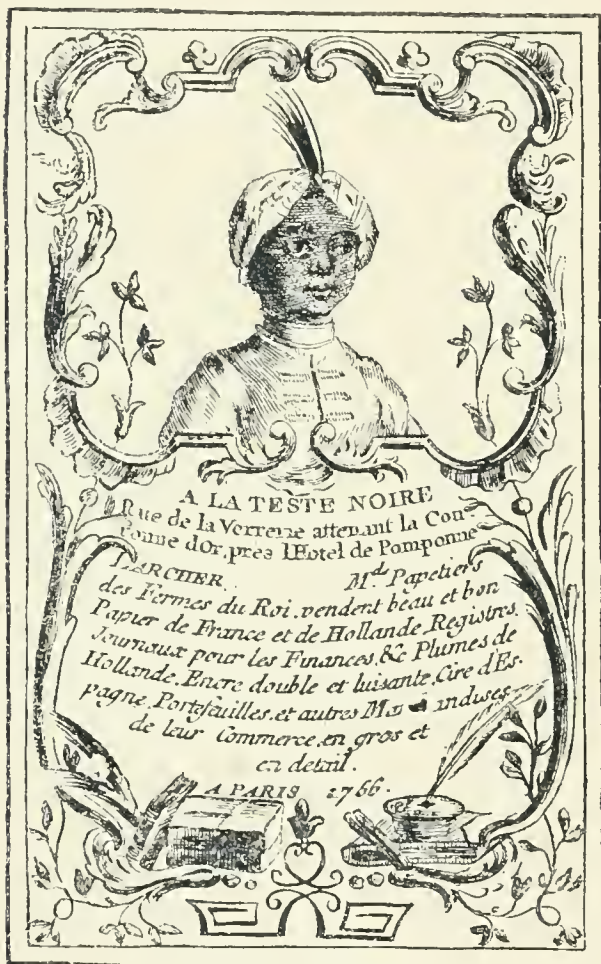 A LA TESTE NOIRE
Rue de la Verrerie attenant la Cou-
ronne d'or, pres l'Hotel de Pomponne
LARCHER. M.ds Papetiers
des Fermes du Roi, vendent beau et bon
Papier de France et de Hollande, Registres,
Journaux pour les Finances, &c Plumes de
Hollande, Encre double et luisante, Cire d'Es-
pagne, Portefeuilles, et autres
de leur Commerce, en gros et
en detail.
A PARIS 1766.